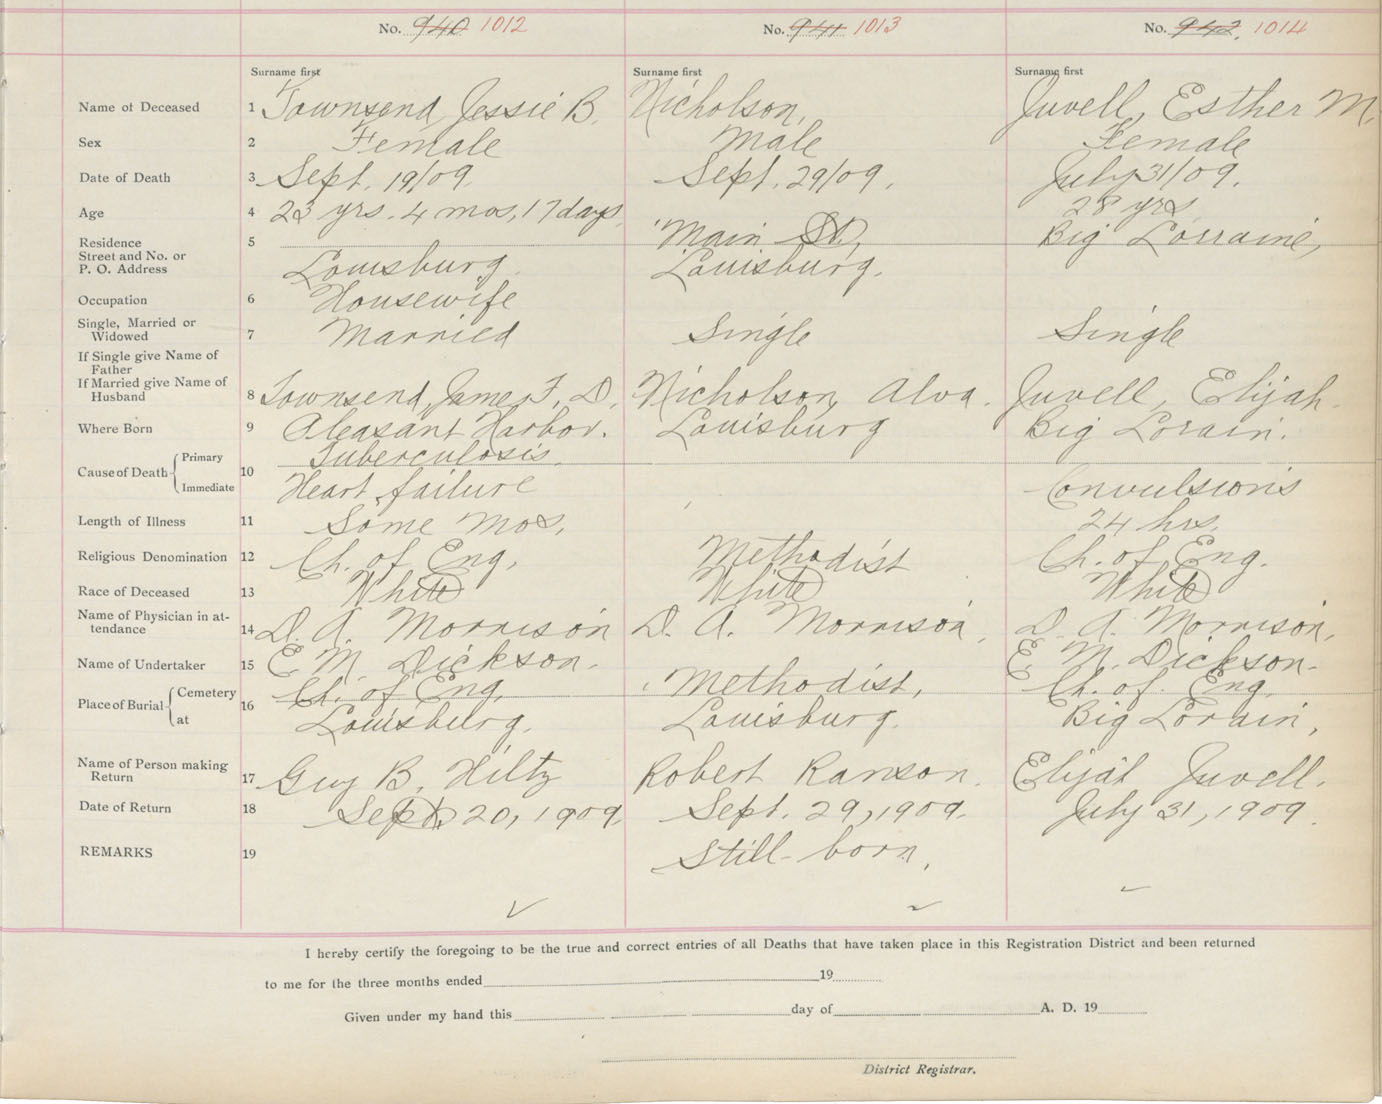 No. 940 1012 No. 941 1013 No. 942. 1014
Surname first Surname first Surname first
Name of Deceased 1 Townsend, Jessie B. Nicholson, Juvell, Esther M.
Sex 2 Female Male Female
Date of Death 3 Sept. 19/09 Sept. 29/09. July 31/09.
Age 4 23 yrs. 4 mos, 17 days 28 yrs
Residence 5 Main St, Big Lorraine,
Street and No. or
P. O. Address Louisburg. Louisburg.
Occupation 6 Housewife
Single, Married or
Widowed 7 Married Single Single
If Single give Name of
Father
If Married give Name of
Husband 8 Townsend, James F. D. Nicholson, Alva. Juvell, Elijah.
Where Born 9 Pleasant Harbor. Louisburg Big Lorain.
Cause of Death Primary 10 Tuberculosis.
Immediate Heart failure Convulsions
Length of Illness 11 Some mos, 24 hrs.
Religious Denomination 12 Ch. of Eng, Methodist Ch. of Eng.
Race of Deceased 13 White White White
Name of Physician in at-
tendance 14 D. A. Morrison D. A. Morrison, D. A. Morrison,
Name of Undertaker 15 E M Dickson. E M. Dickson.
Place of Burial Cemetery 16 Ch. of Eng, Methodist, Ch. of Eng,
at Louisburg. Louisburg. Big Lorain,
Name of Person making
Return 17 Guy B. Hiltz Robert Ranson. Elijah Juvell.
Date of Return 18 Sept. 20, 1909. Sept. 29, 1909. July 31, 1909.
REMARKS 19 Still-born,
I hereby certify the foregoing to be the true and correct entries of all Deaths that have taken place in this Registration District and been returned
to me for the three months ended 19
Given under my hand this day of A. D. 19
District Registrar.